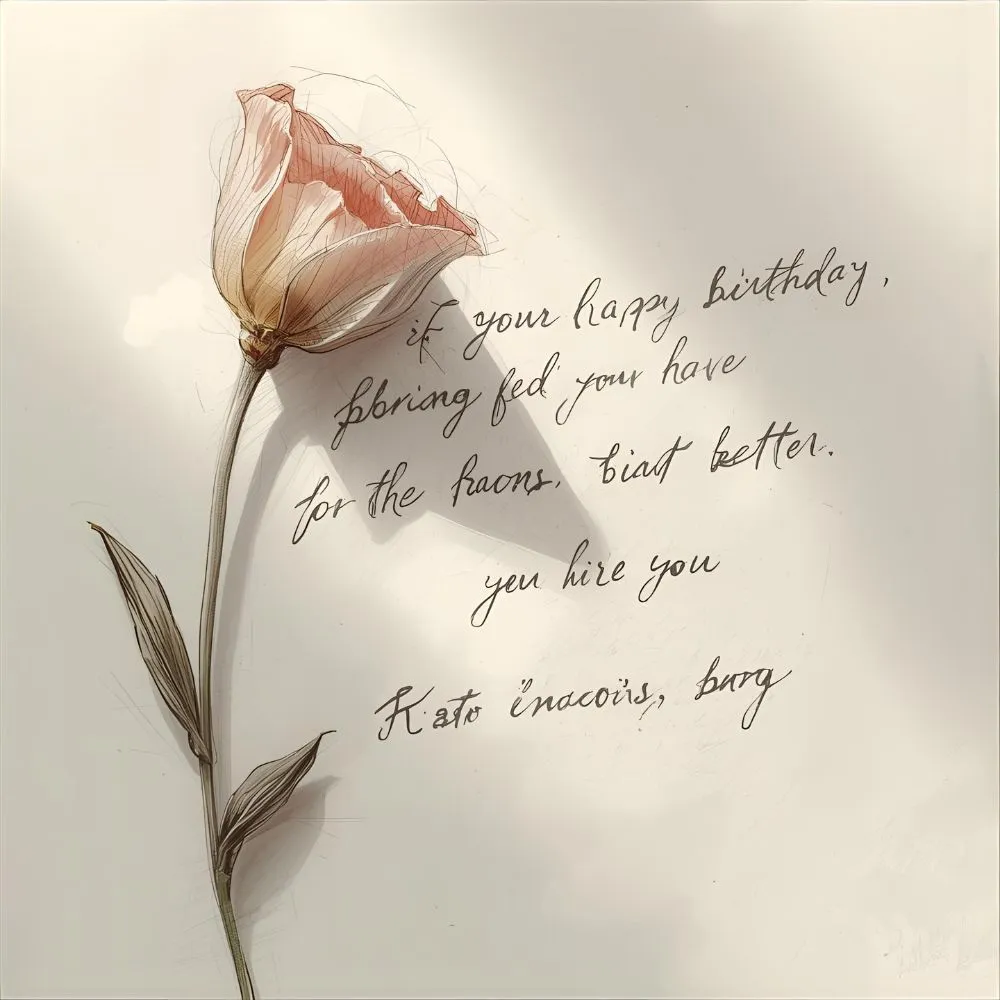 if your happy birthday,
pbriang fed your have
for the haons, biart better.
yeu hire you
Kato inacoiis, burg